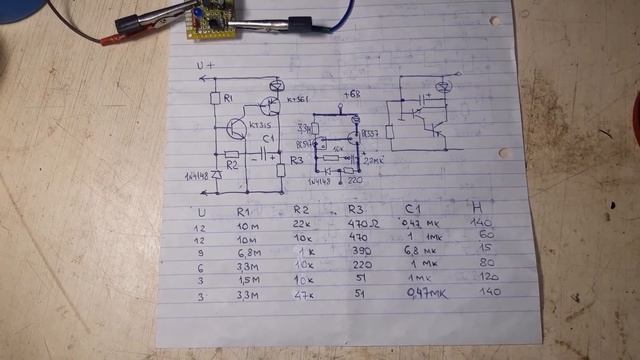 U +
R1
КТ361
КТ315
C1
R2
- +
R3
1N4148
+6В
3,3м
BC557
BC547
10к
+
22мк
1N4148
220
+
U R1 R2 R3 C1 H
12 10м 22к 470Ω 0,47 мк 140
12 10м 10к 470 1 мк 60
9 6,8м 1к 390 6,8 мк 15
6 3,3м 10к 220 1 мк 80
3 1,5м 10к 51 1 мк 120
3 3,3м 47к 51 0,47мк 140